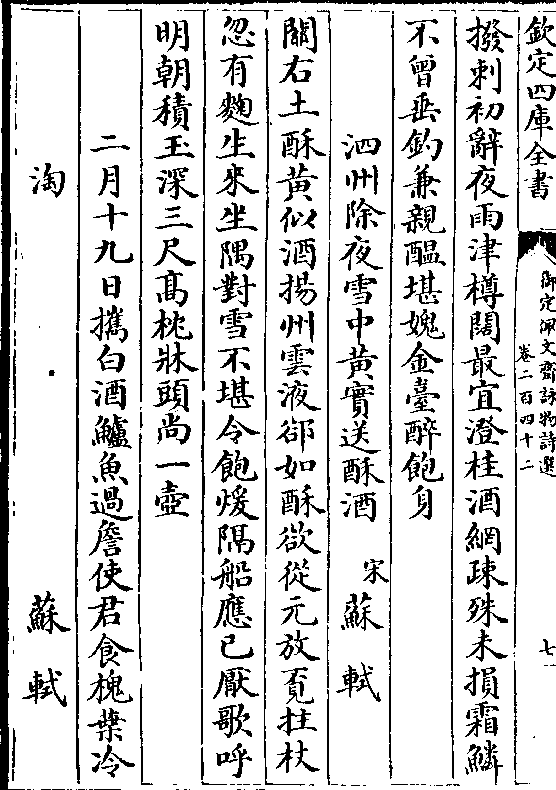 欽定四庫全書
御定佩文齋詠物詩選
卷二百四十二
七
撥刺初辭夜雨津樽闊最宜澄桂酒網疎殊未損霜鱗
不曾垂釣兼親醞堪媿金臺醉飽身
泗州除夜雪中黃實送酥酒
宋蘇軾
關右土酥黃似酒揚州雲液郤如酥欲從元放覔拄杖
忽有麴生來坐隅對雪不堪令飽煖隔船應已厭歌呼
明朝積玉深三尺髙枕牀頭尚一壺
二月十九日攜白酒鱸魚過詹使君食槐葉冷
淘
蘇軾